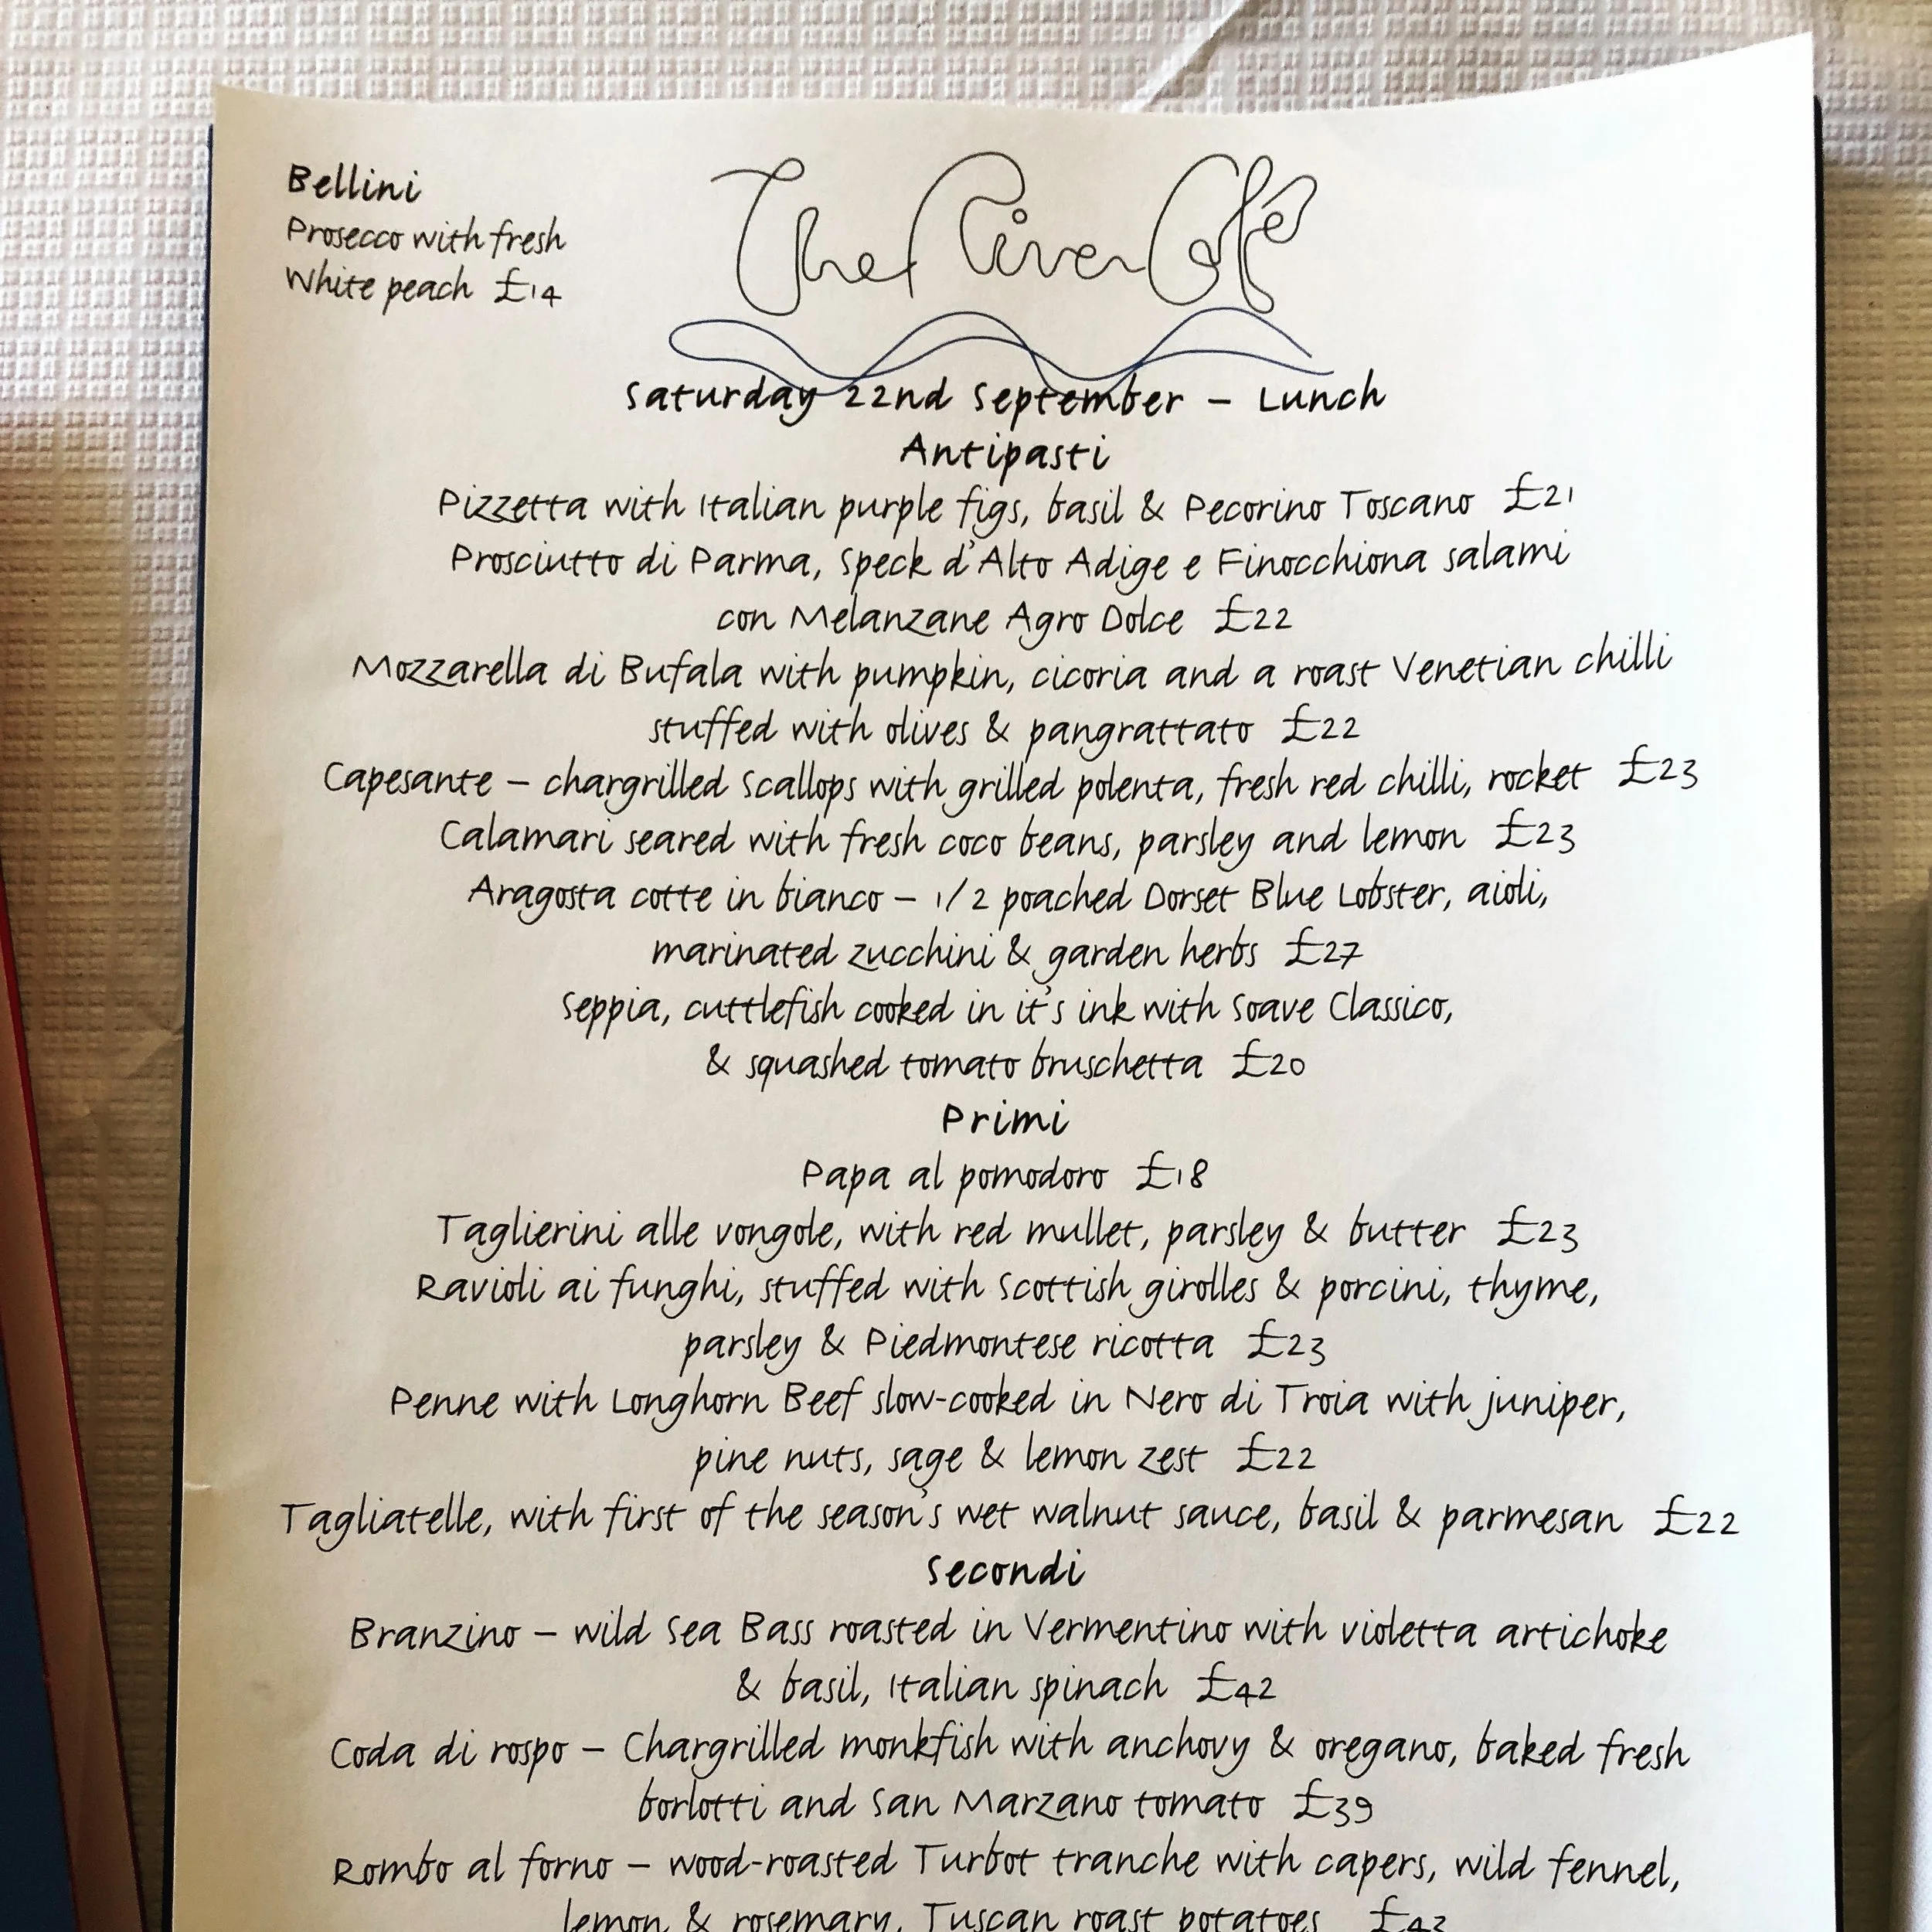 Bellini
Prosecco with fresh
White peach £14
The River Café
Saturday 22nd September – Lunch
Antipasti
Pizzetta with Italian purple figs, basil & Pecorino Toscano £21
Prosciutto di Parma, Speck d'Alto Adige e Finocchiona salami
con Melanzane Agro Dolce £22
Mozzarella di Bufala with pumpkin, cicoria and a roast Venetian chilli
stuffed with olives & pangrattato £22
Capesante – chargrilled Scallops with grilled polenta, fresh red chilli, rocket £23
Calamari seared with fresh coco beans, parsley and lemon £23
Aragosta cotte in bianco – 1/2 poached Dorset Blue Lobster, aioli,
marinated zucchini & garden herbs £27
Seppia, cuttlefish cooked in it's ink with Soave Classico,
& squashed tomato bruschetta £20
Primi
Papa al pomodoro £18
Taglierini alle vongole, with red mullet, parsley & butter £23
Ravioli ai funghi, stuffed with Scottish girolles & porcini, thyme,
parsley & Piedmontese ricotta £23
Penne with Longhorn Beef slow-cooked in Nero di Troia with juniper,
pine nuts, sage & lemon zest £22
Tagliatelle, with first of the season's wet walnut sauce, basil & parmesan £22
Secondi
Branzino – wild Sea Bass roasted in Vermentino with violetta artichoke
& basil, Italian spinach £42
Coda di rospo – Chargrilled monkfish with anchovy & oregano, baked fresh
borlotti and San Marzano tomato £39
Rombo al forno – wood-roasted Turbot tranche with capers, wild fennel,
lemon & rosemary, Tuscan roast potatoes